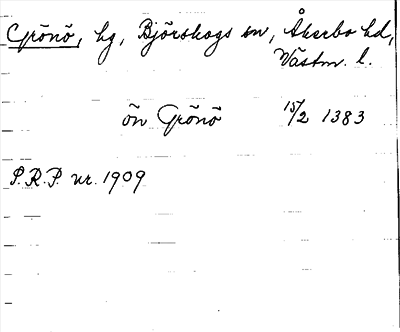 Grönö, hg, Björskogs sn, Åkerbo hd,
Västm. l.
ön Grönö 15/2 1383
P.R.P. nr. 1909